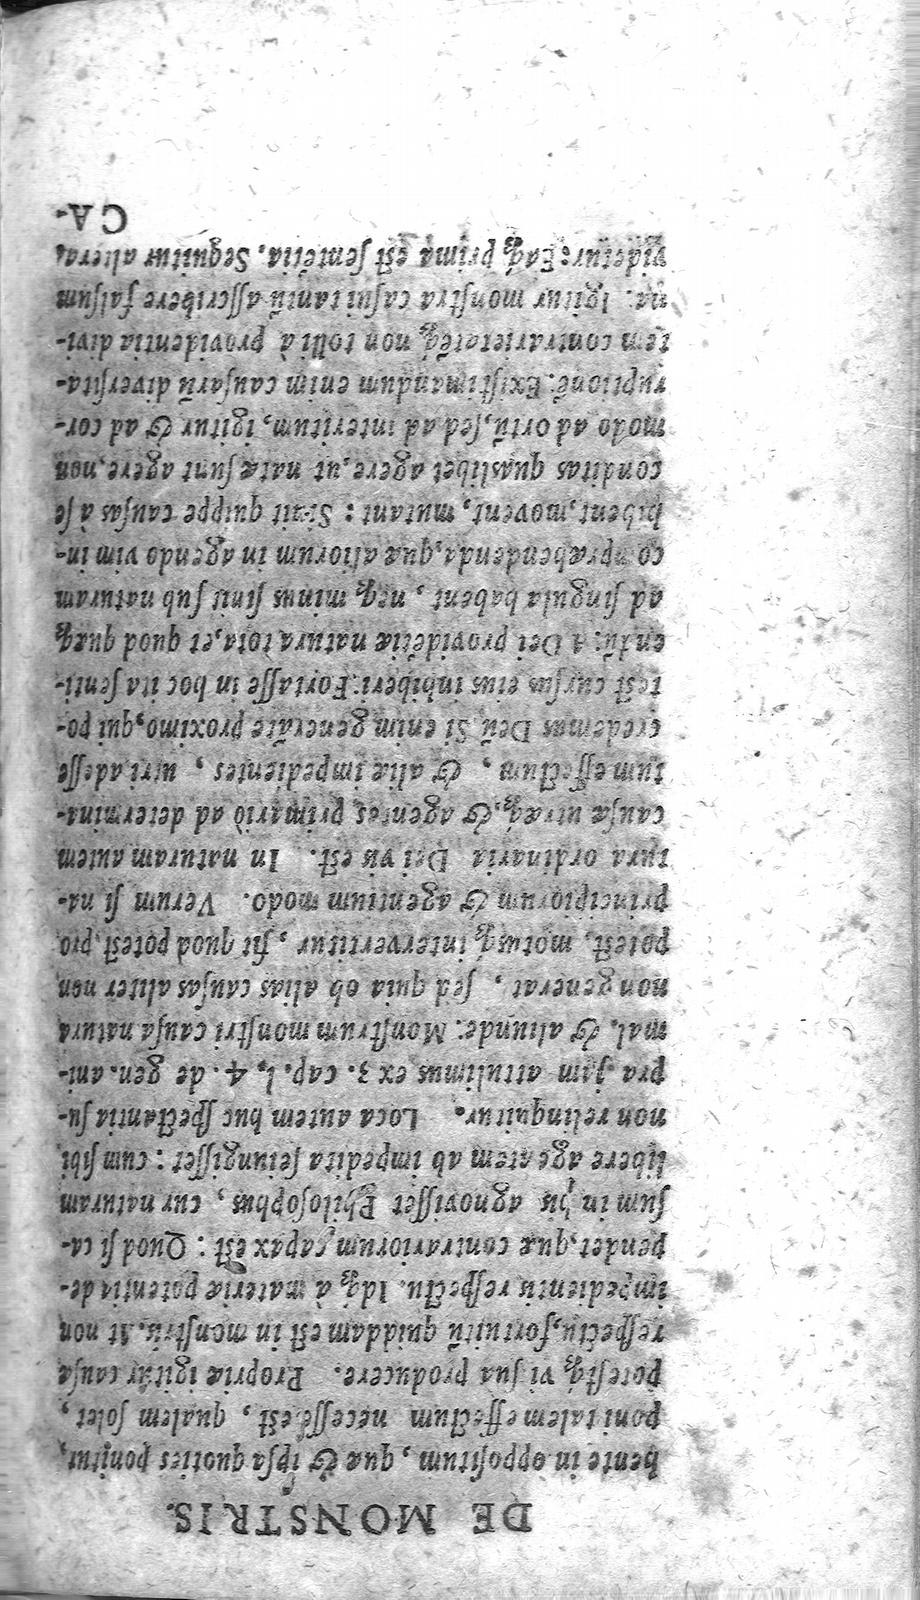 DE MONSTRIS.
bente in oppositum, quæ & ipsa quoties ponitur,
poni talem effectum necesse est, qualem solet,
potestq́ꝫ vi sua producere. Propriæ igitur causæ
respectu, fortuitũ quiddam est in monstris. At non
impedientis respectu. Idq́ꝫ à materiæ potentia de-
pendet, quæ contrariorum capax est: Quod si ca-
sum in his agnovisset Philosophus, cur naturam
libere agentem ab impedita seiungisset: cum sibi
non relinquitur. Loca autem huc spectantia su-
pra jam attulimus ex 3. cap. l. 4. de gen. ani-
mal. & aliunde. Monstrum monstri causa natura
non generat, sed quia ob alias causas aliter non
potest, motusq́ꝫ intervertitur, fit quod potest, pro
principiorum & agentium modo. Verum si na-
tura ordinaria Dei vis est. In naturam autem
causæ utræq́ꝫ, & agentes primariò ad determina-
tum effectum, & aliæ impedientes, utri adesse
credemus Deũ? Si enim generãte proximo, qui po-
test cursus eius inhiberi? Fortasse in hoc ita senti-
endũ: A Dei providẽtiæ natura tota, et quod quæq́ꝫ
ad singula habent, neq́ꝫ minus sint sub naturam
compræhendenda, quæ aliorum in agendo vim in-
hibent, movent, mutant: Sinit quippe causas à se
conditas quaslibet agere, ut natæ sunt agere, non
modo ad ortũ, sed ad interitum, igitur & ad cor-
ruptionẽ. Existimandum enim causarũ diversita-
tem contrarietatẽq́ꝫ non tolli à providentia divi-
na. Igitur monstra casui tantũ asscribere falsum
videtur: Eaq́ꝫ prima est sentẽtia. Sequitur altera.
CA-